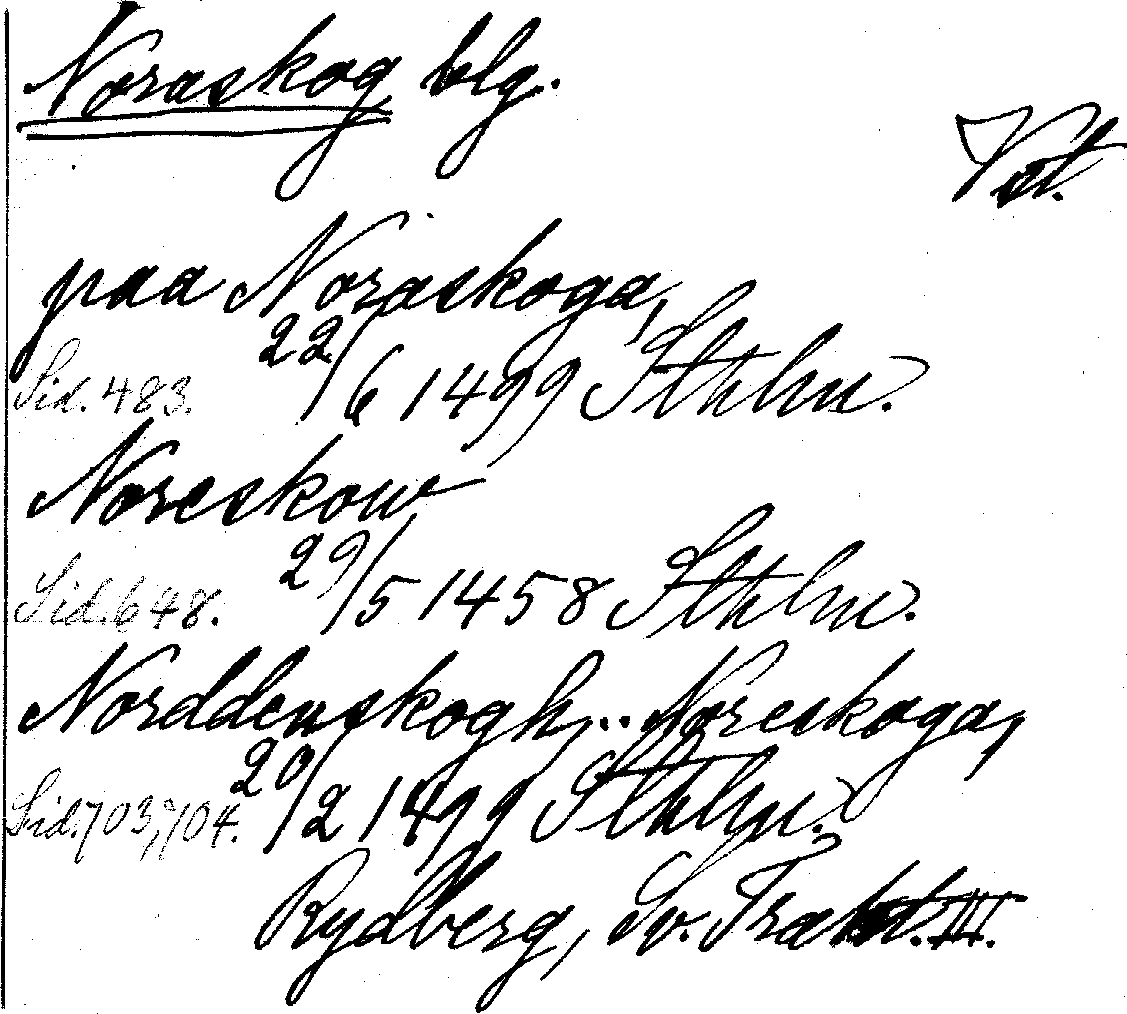 Noraskog blg.
Vstm.
paa Noraskoga,
Sid. 483. 22/6 1499 Sthlm.
Noreskow
Sid. 648. 29/5 1458 Sthlm.
Norddenskogh, .. Noreskoga,
Sid. 703, 704. 20/2 1499 Sthlm.
Rydberg, Sv. Trakt. III.